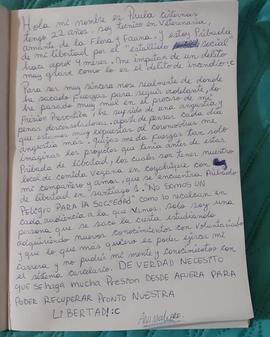 Hola mi nombre es Paula Cisternas
tengo 22 años, soy tecnico en Veterinaria,
amante de la Flora y Fauna. y estoy Privada
de mi libertad, por el "estallido social"
hace aprox 4 meses. me imputan de un delito
muy grave como lo es el delito de incendio :c
Para ser muy sincera nose realmente de donde
he sacado fuerzas para seguir adelante, lo
he pasado muy mal en el proceso de mi
Prisión Preventiva, he sufrido de una angustia y
penas desconsoladoras, aparte de pensar cada día
que estamos muy expuestas al coronavirus me
angustia más, quizas me da fuerzas tan solo
imaginar los proyectos que tenía antes de estar
Privada de Libertad, los cuales son tener nuestro
local de comida Vegana en Coyhaique con
mi compañero y amor, que se encuentra Privado
de libertad en "santiago 1. "NO SOMOS UN
PELIGRO PARA lA SOCIEDAD" como lo recalcan en
cada audiencia a la que vamos, solo soy una
persona que se saco la cresta estudiando
adquiriendo nuevos conocimientos con voluntariados
y que lo que más quiero es poder ejercer mi
carrera y no pudrir mi mente y conocimientos con
el sistema carcelario. DE VERDAD NECESITO
que se haga mucha Presión DESDE AFUERA PARA
PODER RECUPERAR PRONTO NUESTRA
LIBERTAD! :c